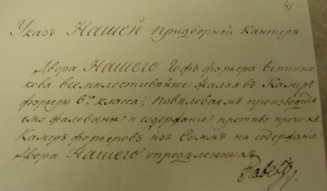 Указъ Нашей придворной Канторѣ
Двора Нашего Гофъ фурьера
всемилостивѣйше жалуя въ Камеръ
фурьеры 6го класса, повелѣваемъ производить
ему жалованье и содержание противъ прочихъ
Камеръ фурьеровъ изъ Суммъ на содержание
Двора Нашего опредѣленныхъ
Павелъ